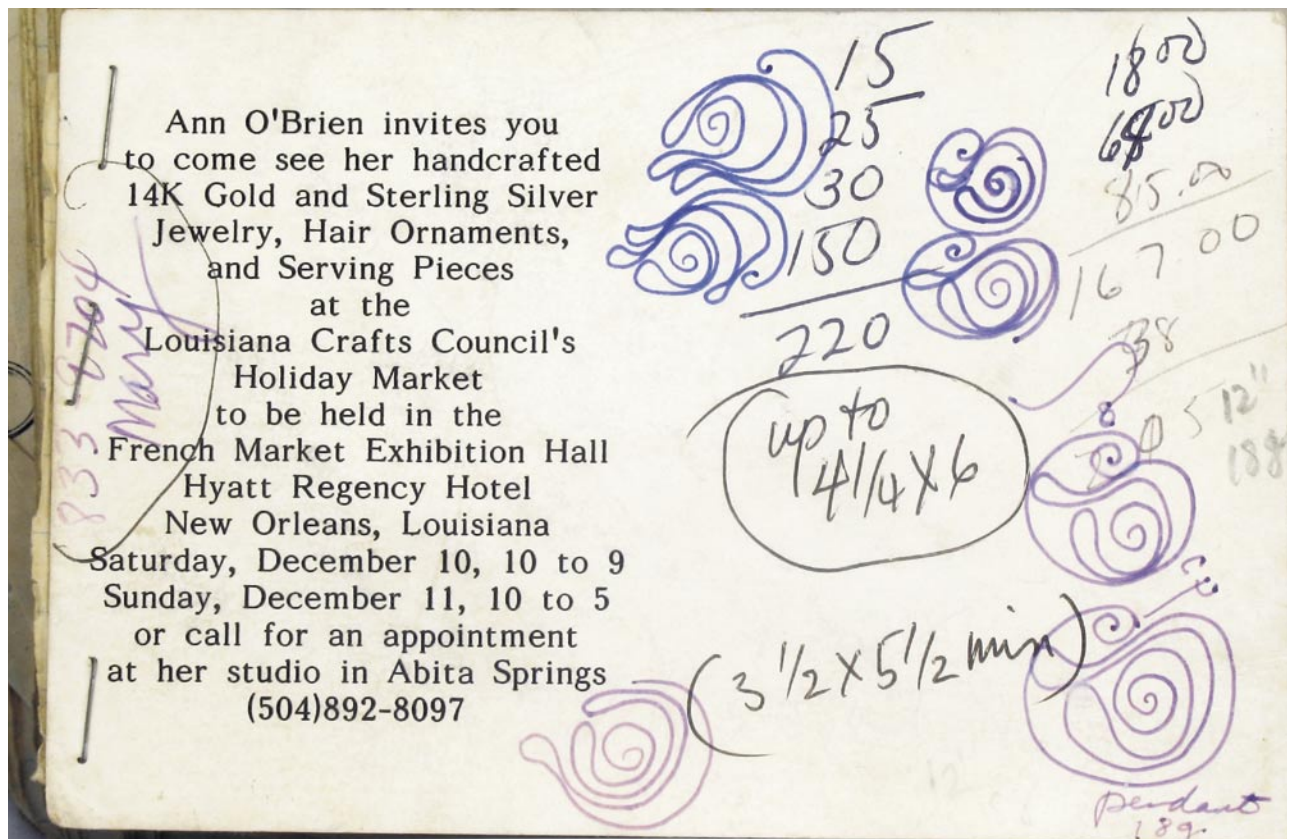 Ann O'Brien invites you
to come see her handcrafted
14K Gold and Sterling Silver
Jewelry, Hair Ornaments,
and Serving Pieces
at the
Louisiana Crafts Council's
Holiday Market
to be held in the
French Market Exhibition Hall
Hyatt Regency Hotel
New Orleans, Louisiana
Saturday, December 10, 10 to 9
Sunday, December 11, 10 to 5
or call for an appointment
at her studio in Abita Springs
(504)892-8097
833 8704
Mary
15
25
30
150
220
up to
4 1/4 X 6
(3 1/2 X 5 1/2 min)
18 00
85.00
167.00
38
12"
188
pendant